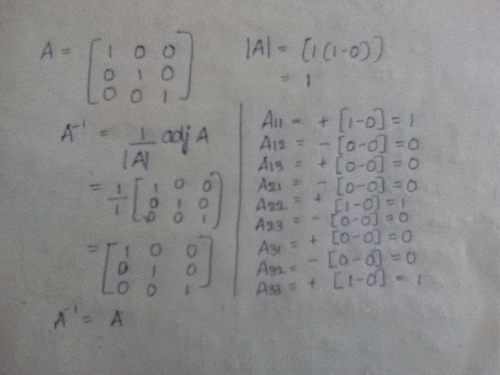 A = [1 0 0
0 1 0
0 0 1]
|A| = [1(1-0)]
= 1
A⁻¹ = 1/|A| adj A
= 1/1 [1 0 0
0 1 0
0 0 1]
= [1 0 0
0 1 0
0 0 1]
A⁻¹ = A
A11 = + [1-0] = 1
A12 = - [0-0] = 0
A13 = + [0-0] = 0
A21 = - [0-0] = 0
A22 = + [1-0] = 1
A23 = - [0-0] = 0
A31 = + [0-0] = 0
A32 = - [0-0] = 0
A33 = + [1-0] = 1